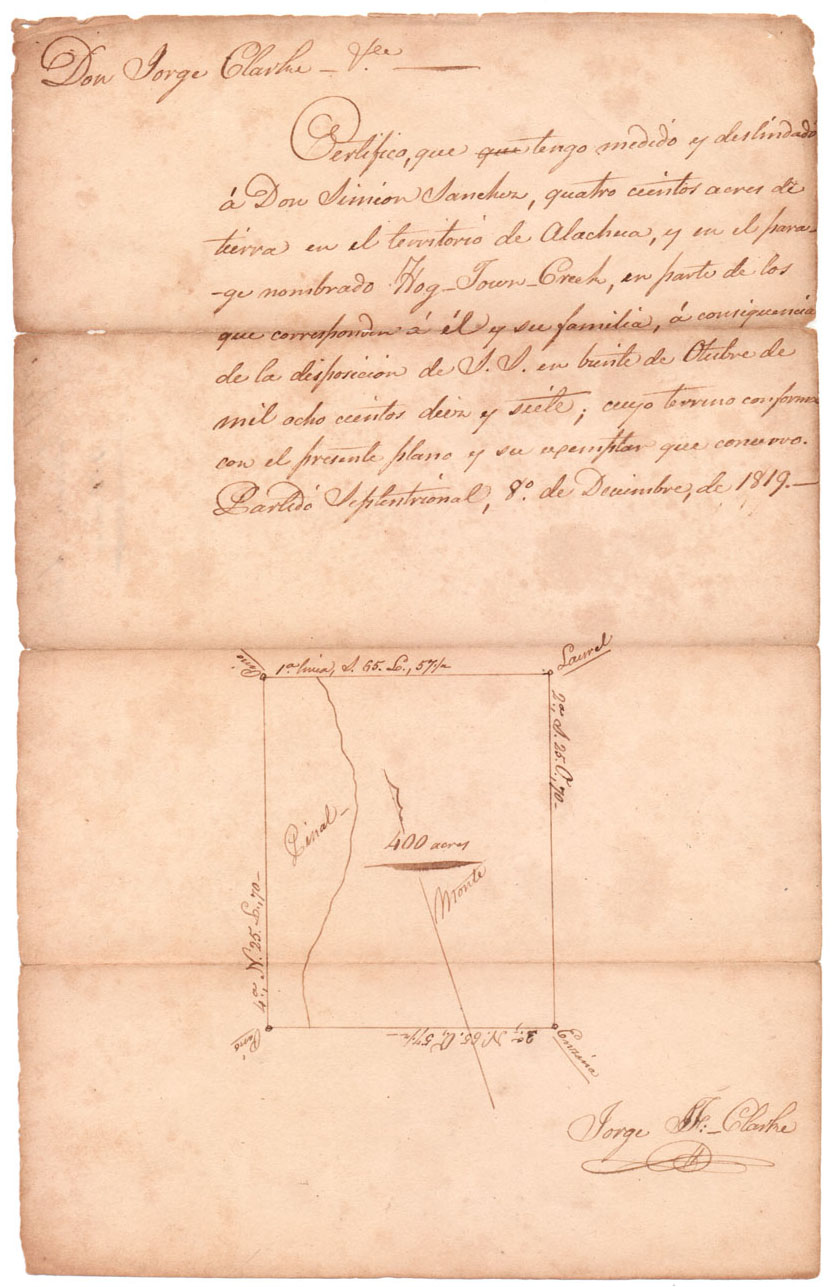 Don Jorge Clarke – &.ce —
Certifico, que que tengo medido y deslindado
á Don Simeon Sanchez, quatro cientos acres de
tierra en el territorio de Alachua, y en el para-
-ge nombrado Hog-Town-Creek, en parte de los
que corresponden á él y su familia, á consiquencia
de la disposicion de S. S. en beinte de Otubre de
mil ocho cientos deiz y siéte; cuyo terreno conforma
con el presente plano y su exemplar que conservo.
Partido Septentrional, 8º de Deciembre, de 1819.—
Pino
1ª linea, S. 65. E., 57½
Laurel
2ª, S. 25. O., 70-
Pinal-
400 acres
Monte
4ª, N. 25. E., 70-
Pino
3ª, N. 65. O., 57½-
Encina
Jorge J. F:- Clarke